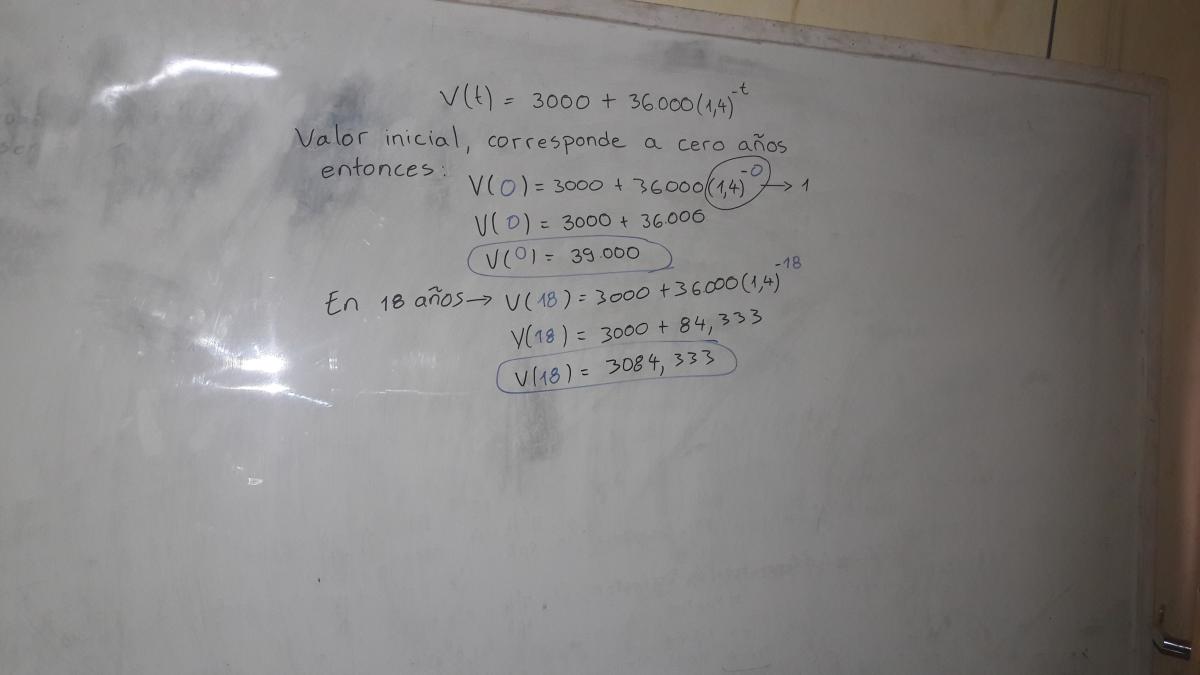 V(t) = 3000 + 36.000(1,4)^-t
Valor inicial, corresponde a cero años
entonces:
V(0) = 3000 + 36000(1,4)^-0 → 1
V(0) = 3000 + 36.000
V(0) = 39.000
En 18 años → V(18) = 3000 + 36000(1,4)^-18
V(18) = 3000 + 84,333
V(18) = 3084,333